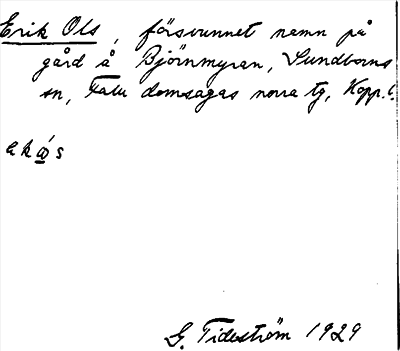 Erik Ols, försvunnet namn på
gård å Björnmyran, Sundborns
sn, Falu domsagas norra tg, Kopp.l.
G. Tideström 1929